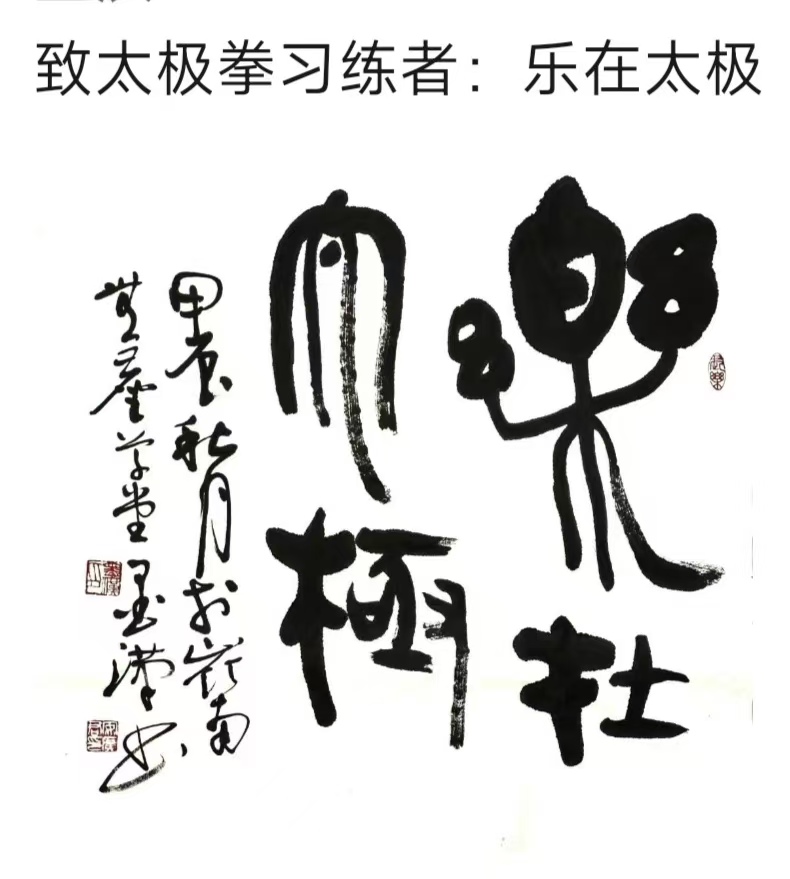 致太极拳习练者：乐在太极
樂在
太極
甲辰秋月於嶺南
草堂墨濤书